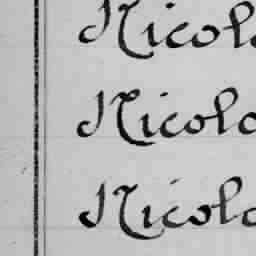 Nicola
Nicola
Nicola